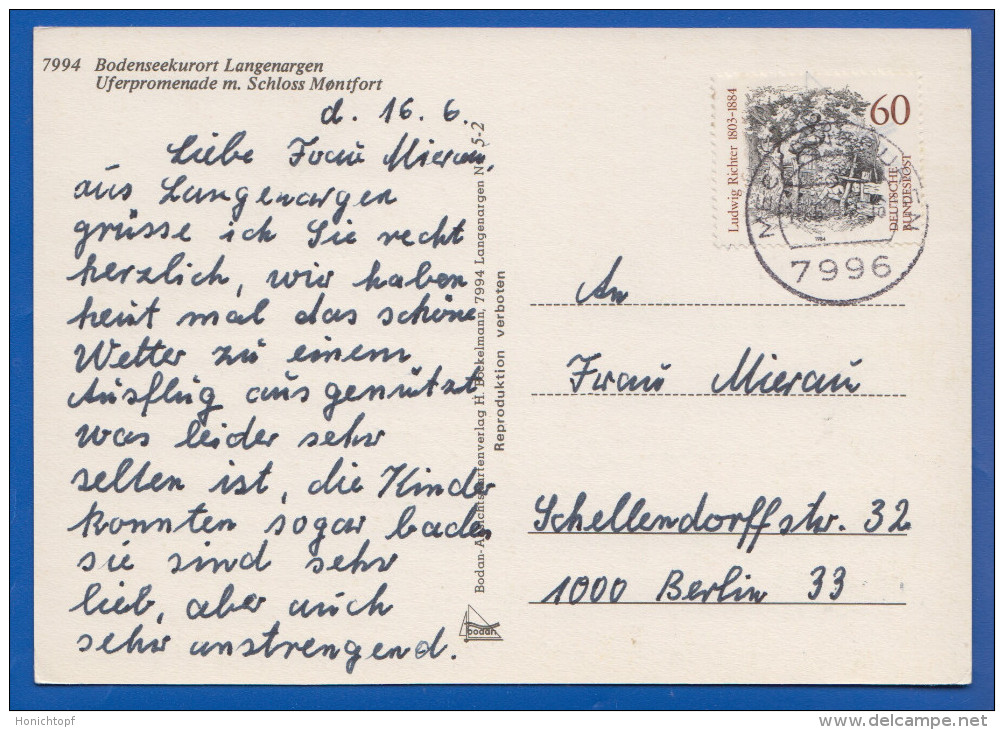 7994 Bodenseekurort Langenargen
Uferpromenade m. Schloss Montfort
d. 16. 6.
Liebe Frau Mierau,
aus Langenargen
grüsse ich Sie recht
herzlich, wir haben
heut mal das schöne
Wetter zu einem
Ausflug ausgenützt
was leider sehr
selten ist, die Kinder
konnten sogar baden
sie sind sehr
lieb, aber auch
sehr anstrengend.
Bodan-Ansichtskartenverlag H. Bockelmann, 7994 Langenargen 5-2
Reproduktion verboten
bodan
Ludwig Richter 1803-1884
60
DEUTSCHE
BUNDESPOST
1984
7996
An
Frau Mierau
Schellendorffstr. 32
1000 Berlin 33
Honichtopf
www.delcampe.net